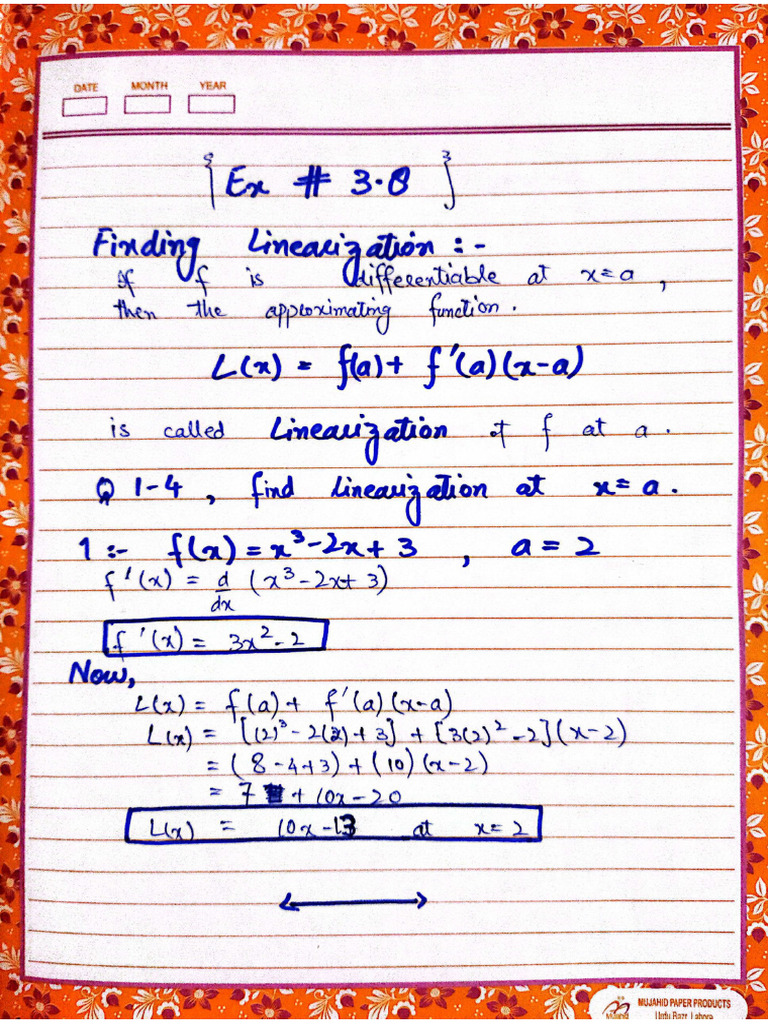 DATE MONTH YEAR
{ Ex # 3.8 }
Finding Linearization :-
If f is differentiable at x=a ,
then the approximating function .
L(x) = f(a) + f'(a)(x-a)
is called Linearization of f at a .
Q 1-4 , find Linearization at x=a .
1 :- f(x) = x³-2x+3 , a=2
f'(x) = d/dx (x³-2x+3)
f'(x) = 3x²-2
Now,
L(x) = f(a) + f'(a)(x-a)
L(x) = [(2)³-2(2)+3] + [3(2)²-2](x-2)
= (8-4+3)+(10)(x-2)
= 7 + 10x-20
L(x) = 10x-13 at x=2
MUJAHID PAPER PRODUCTS
Urdu Bazr, Lahore